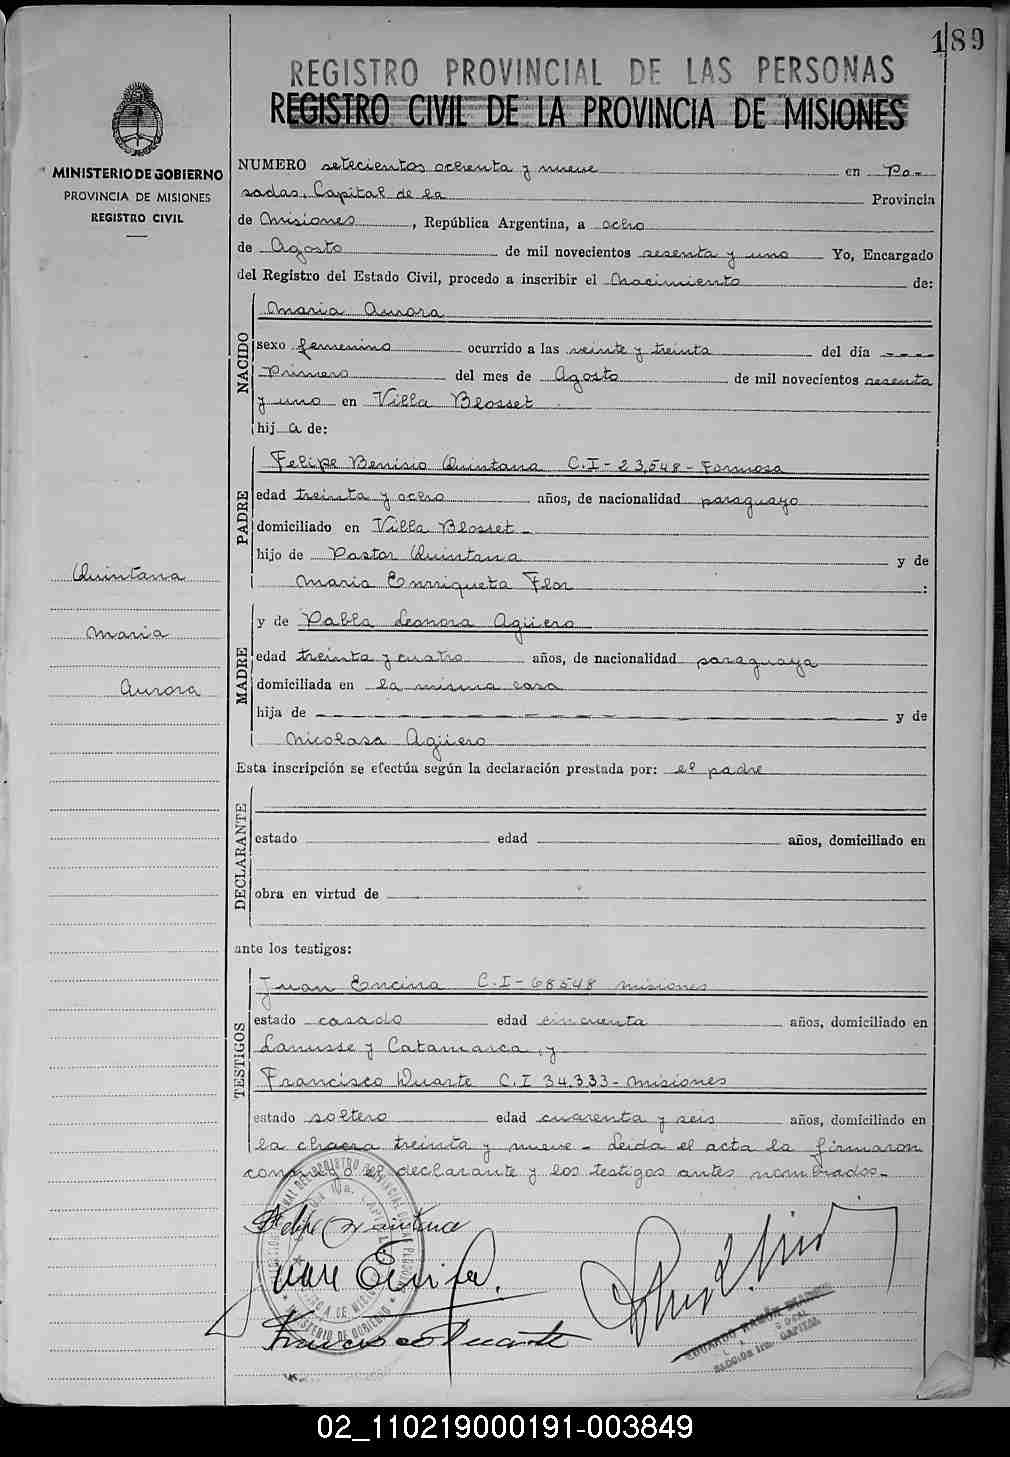 189
REGISTRO PROVINCIAL DE LAS PERSONAS
REGISTRO CIVIL DE LA PROVINCIA DE MISIONES
MINISTERIO DE GOBIERNO
PROVINCIA DE MISIONES
REGISTRO CIVIL
NUMERO setecientos ochenta y nueve en Po-
sadas, Capital de la Provincia
de Misiones, República Argentina, a ocho
de Agosto de mil novecientos sesenta y uno Yo, Encargado
del Registro del Estado Civil, procedo a inscribir el Nacimiento de:
NACIDO
Maria Aurora
sexo femenino ocurrido a las veinte y treinta del día ----
Primero del mes de Agosto de mil novecientos sesenta
y uno en Villa Blosset
hij a de:
PADRE
Felipe Benisio Quintana C.I-23,548-Formosa
edad treinta y ocho años, de nacionalidad paraguayo
domiciliado en Villa Blosset-
hijo de Pastor Quintana y de
Maria Enrriqueta Flor :
Quintana
Maria
Aurora
MADRE
y de Pabla Leonora Agüero
edad treinta y cuatro años, de nacionalidad paraguaya
domiciliada en la misma casa
hija de — — — — — — — — y de
Nicolasa Agüero
Esta inscripción se efectúa según la declaración prestada por: el padre
DECLARANTE
estado edad años, domiciliado en
obra en virtud de
ante los testigos:
TESTIGOS
Juan Encina C.I-68548 misiones
estado casado edad cincuenta años, domiciliado en
Lanusse y Catamarca, y
Francisco Duarte C.I 34.333-misiones
estado soltero edad cuarenta y seis años, domiciliado en
la chacra treinta y nueve- Leida el acta la firmaron
conmigo el declarante y los testigos antes nombrados-
Felipe Quintana
Juan Encina
Francisco Duarte
EDUARDO RAMÓN
CAPITAL
02_110219000191-003849